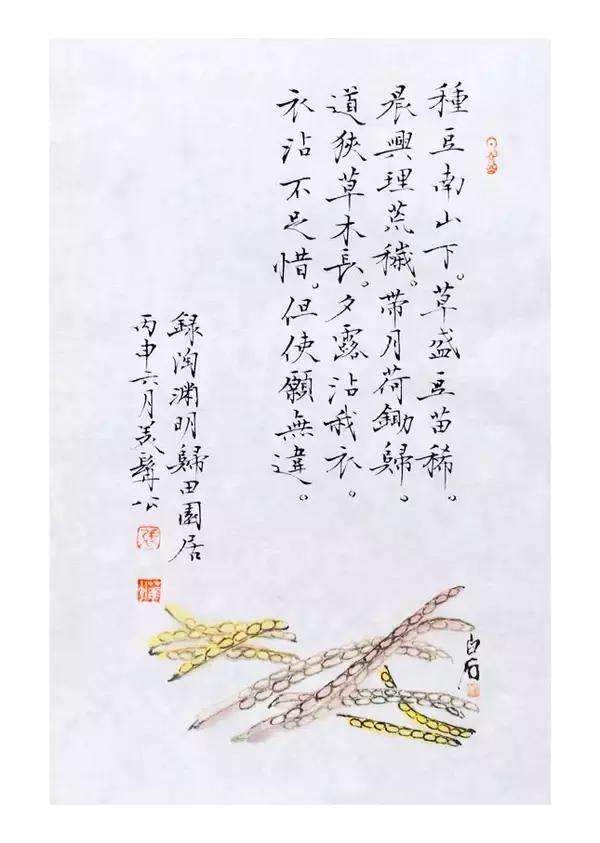 種豆南山下。草盛豆苗稀。
晨興理荒穢。帶月荷鋤歸。
道狹草木長。夕露沾我衣。
衣沾不足惜。但使願無違。
錄陶渊明歸田園居
丙申六月美髯公
白石